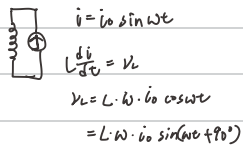 i = i₀ sin ωt
L di/dt = V_L
V_L = L · ω · i₀ cos ωt
= L · ω · i₀ sin(ωt + 90°)